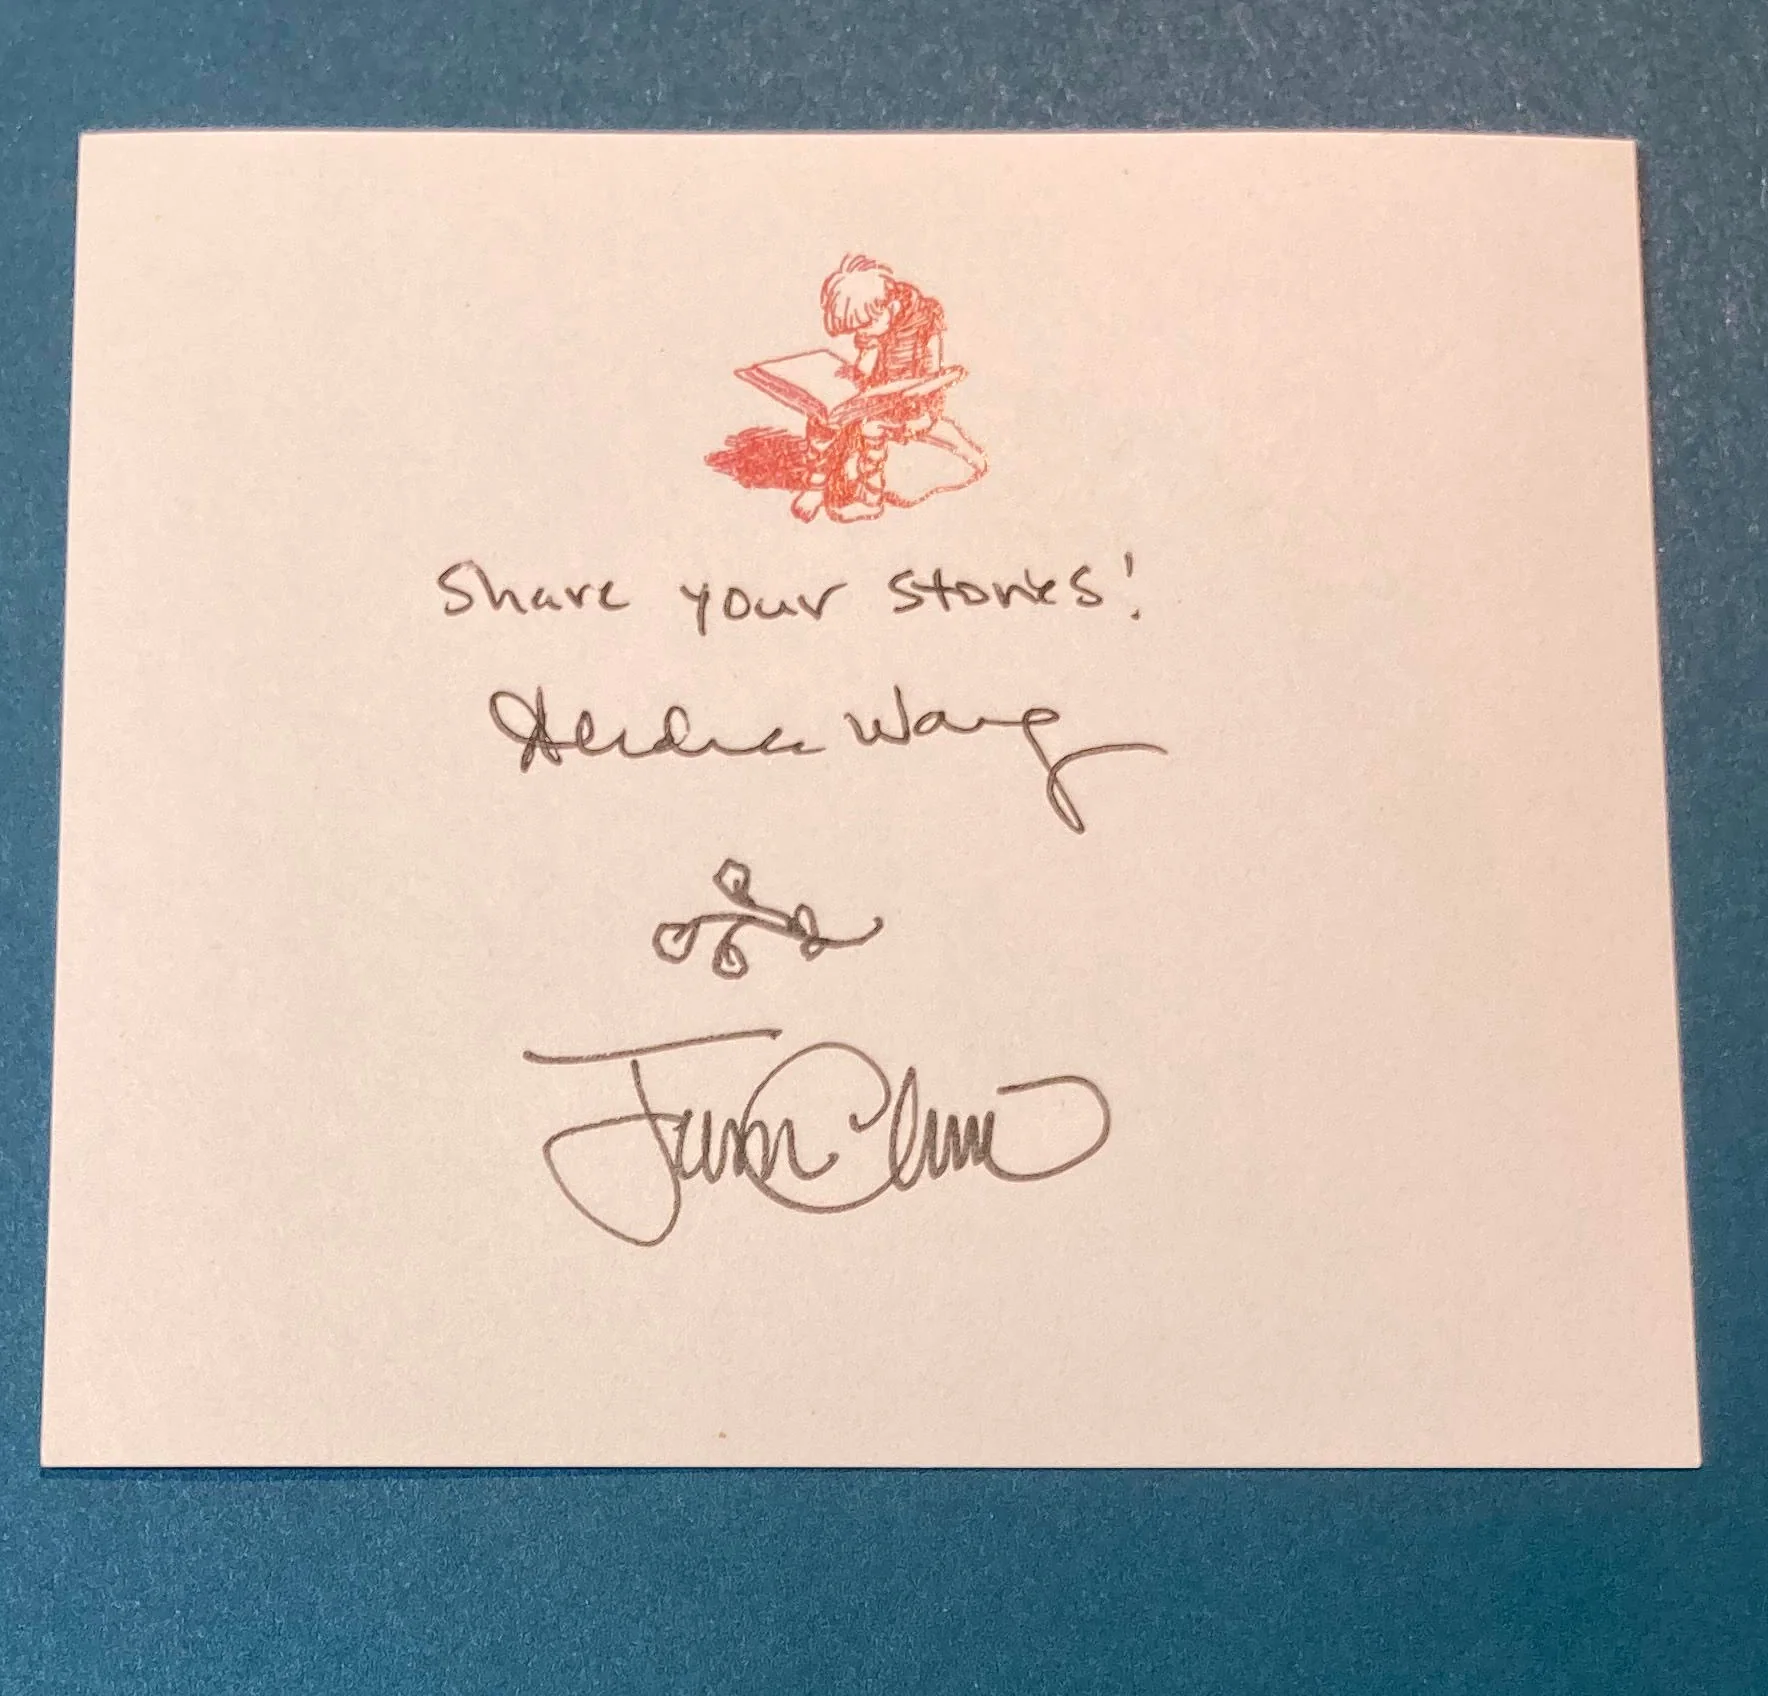 Share your stories!
Andrea Wang
Jason Chin